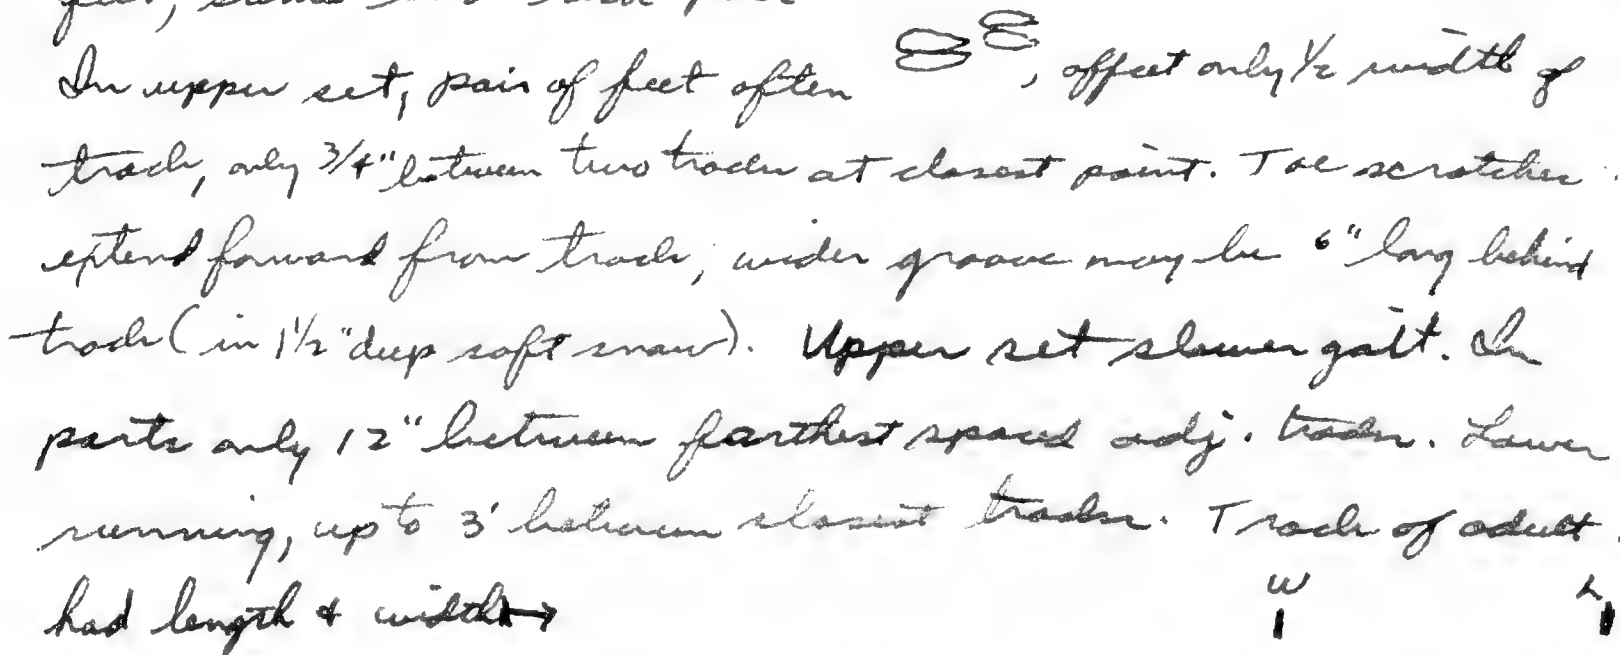 feet,
In upper set, pair of feet often , offset only 1/2 width of
track, only 3/4" between two tracks at closest point. Toe scratches
extend forward from track, wider groove may be 6" long behind
track (in 1 1/2" deep soft snow). Upper set slower gait. In
parts only 12" between farthest spaced adj. tracks. Lower
running, up to 3' between closest tracks. Track of adult
had length & width→
W L